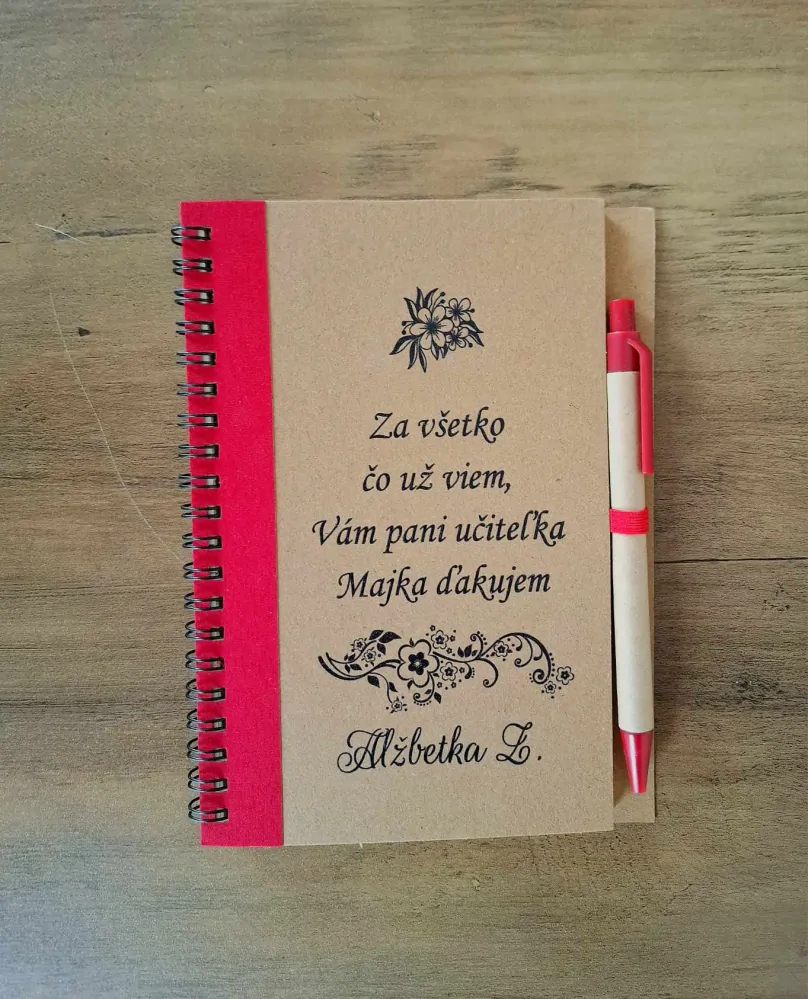 Za všetko
čo už viem,
Vám pani učiteľka
Majka ďakujem
Alžbetka Z.